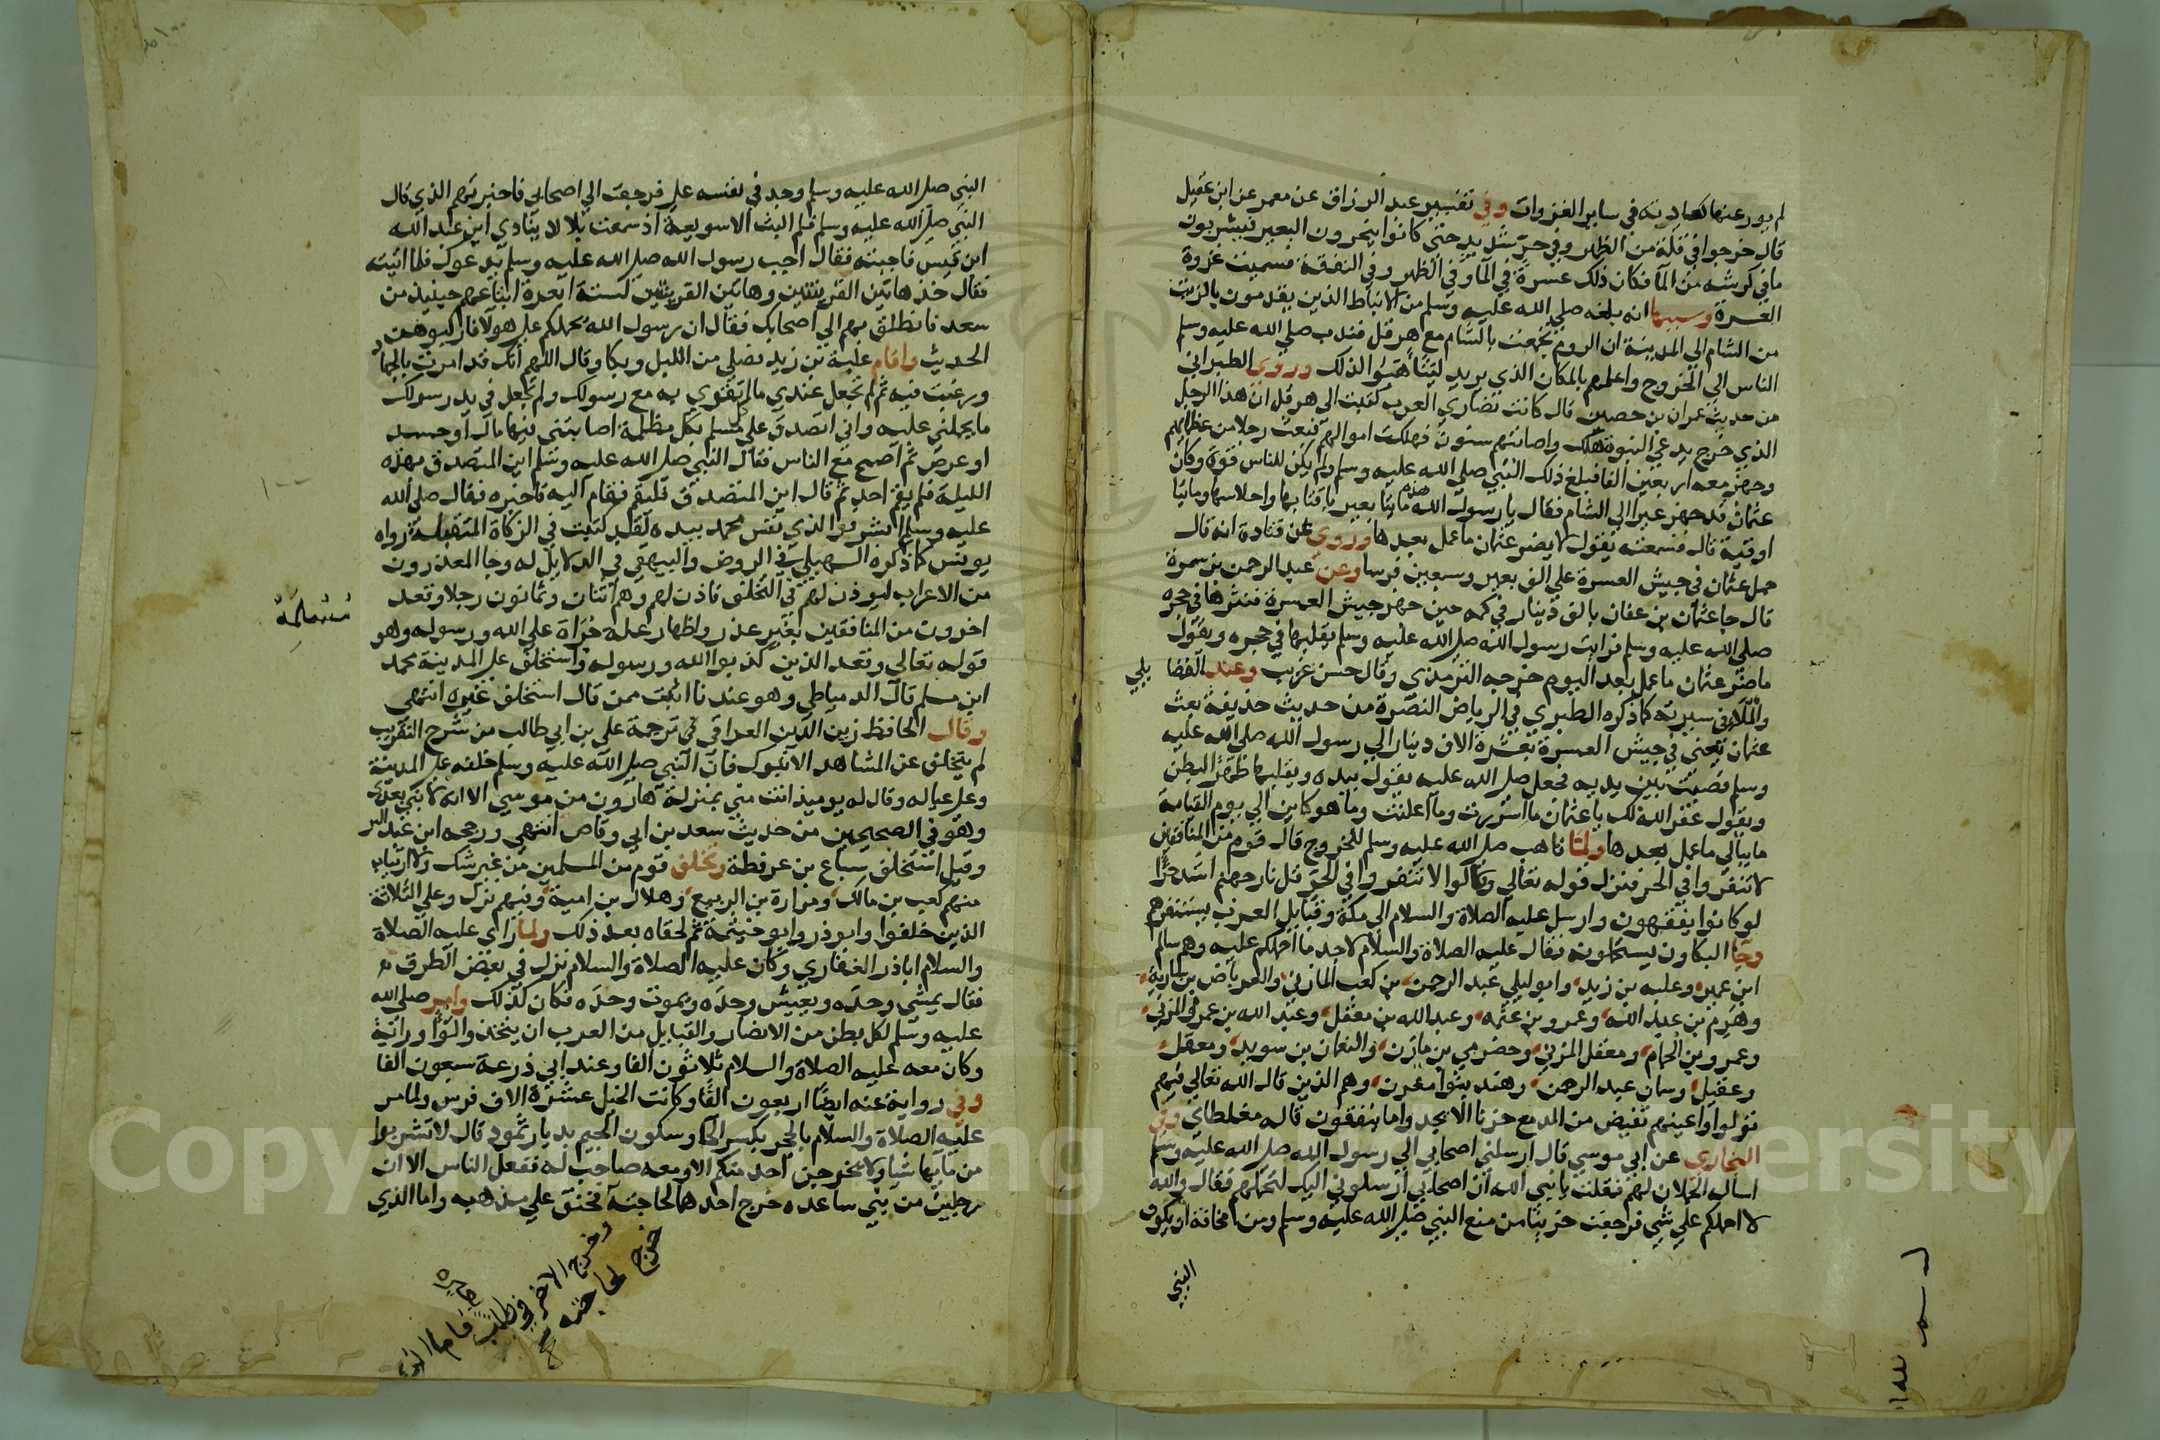 لم يور عنها كعادته في ساير الغزوات وفي تفسير عبد الرزاق عن معمر عن ابن عقيل
قال خرجوا في قلة من الظهر وفي حر شديد حتي كانوا ينحرون البعير فيشربون
ما في كرشه من الما فكان ذلك عسرة في الما وفي الظهر وفي النفقة فسميت غزوة
العسرة وسببها انه بلغه صلي الله عليه وسلم من الانباط الذين يقدمون بالزيت
من الشام الي المدينة ان الروم تجمعت بالشام مع هرقل فندب صلي الله عليه وسلم
الناس الي الخروج واعلمهم بالمكان الذي يريد ليتاهبوا لذلك وروي الطبراني
من حديث عمران بن حصين قال كانت نصاري العرب كتبت الي هرقل ان هذا الرجل
الذي خرج يدعي النبوة هلك واصابتهم سنون فهلكت اموالهم فبعث رجلا من عظمائهم
وجهز معه اربعين الفا فبلغ ذلك النبي صلي الله عليه وسلم ولم يكن للناس قوة وكان
عثمان قد جهز عيرا الي الشام فقال يا رسول الله هذه مايتا بعير باقتابها واحلاسها ومايتا
اوقية قال فسمعته يقول لا يضر عثمان ما عمل بعدها وروي عن قتادة انه قال
حمل عثمان في جيش العسرة علي الف بعير وسبعين فرسا وعن عبد الرحمن بن سمرة
قال جا عثمان بن عفان بالف دينار في كمه حين جهز جيش العسرة فنثرها في حجره
صلي الله عليه وسلم فرايت رسول الله صلي الله عليه وسلم يقلبها في حجره ويقول
ما ضر عثمان ما عمل بعد اليوم خرجه الترمذي وقال حسن غريب وعند الفضا يلي
والملا في سيرته كما ذكره الطبري في الرياض النضرة من حديث حذيفة بعث
عثمان يعني في جيش العسرة بعشرة الاف دينار الي رسول الله صلي الله عليه
وسلم فصبت بين يديه فجعل صلي الله عليه يقول بيده ويقلبها ظهرا لبطن
ويقول غفر الله لك يا عثمان ما اسررت وما اعلنت وما هو كاين الي يوم القيامة
ما يبالي ما عمل بعدها ولما تاهب صلي الله عليه وسلم للخروج قال قوم من المنافقين
لا تنفروا في الحر فنزل قوله تعالي وقالوا لا تنفروا في الحر قل نار جهنم اشد حرا
لو كانوا يفقهون وارسل عليه الصلاة والسلام الي مكة وقبايل العرب يستنفرهم
وجا البكاون يستحملونه فقال عليه الصلاة والسلام لا اجد ما احملكم عليه وهم سالم
ابن عمير وعلبه بن زيد وابو ليلي عبد الرحمن بن كعب المازني والعرباض بن سارية
وهرم بن عبد الله وعمرو بن عتمه وعبد الله بن مغفل وعبد الله بن عمرو المزني
وعمرو بن الحمام ومعقل المزني وحضرمي بن مازن والنعمان بن سويد ومعقل
وعقيل وسنان عبد الرحمن وهند بنوا مقرن وهم الذين قال الله تعالي فيهم
تولوا واعينهم تفيض من الدمع حزنا الا يجدوا ما ينفقون قاله مغلطاي وفي
البخاري عن ابي موسي قال ارسلني اصحابي الي رسول الله صلي الله عليه وسلم
اساله الحملان لهم فقلت يا نبي الله ان اصحابي ارسلوني اليك لتحملهم فقال والله
لا احملكم علي شي فرجعت حزينا من منع النبي صلي الله عليه وسلم ومن مخافة ان يكون
النبي
النبي صلي الله عليه وسلم وجد في نفسه علي فرجعت الي اصحابي فاخبرتهم الذي قال
النبي صلي الله عليه وسلم فلم البث الا سويعة اذ سمعت بلالا ينادي اين عبد الله
ابن قيس فاجبته فقال اجب رسول الله صلي الله عليه وسلم يدعوك فلما اتيته
فقال خذ هاتين القرينتين وهاتين القرينتين لستة ابعرة ابتاعهم حينيذ من
سعد فانطلق بهم الي اصحابك فقال ان رسول الله يحملكم علي هولا فاركبوهن
الحديث واقام علبة بن زيد فصلي من الليل وبكا وقال اللهم انك قد امرت بالجهاد
ورغبت فيه ثم لم تجعل عندي ما اتقوي به مع رسولك ولم تجعل في يد رسولك
ما يحملني عليه واني اتصدق علي كل مسلم بكل مظلمة اصابتني فيها مال او جسد
او عرض ثم اصبح مع الناس فقال النبي صلي الله عليه وسلم اين المتصدق بهذه
الليلة فلم يقم احد ثم قال اين المتصدق فليقم فقام اليه فاخبره فقال صلي الله
عليه وسلم ابشر فوالذي نفس محمد بيده لقد كتبت في الزكاة المتقبلة رواه
يونس كما ذكره السهيلي في الروض والبيهقي في الدلايل له وجا المعذرون
من الاعراب ليوذن لهم في التخلف فاذن لهم وهم اثنان وثمانون رجلا وقعد
اخرون من المنافقين بغير عذر واظهار علة جراة علي الله ورسوله وهو
قوله تعالي وقعد الذين كذبوا الله ورسوله واستخلف علي المدينة محمد
ابن مسلمة قال الدمياطي وهو عندنا اثبت ممن قال استخلف غيره انتهي
وقال الحافظ زين الدين العراقي في ترجمة علي بن ابي طالب من شرح التقريب
لم يتخلف عن المشاهد الا تبوك فان النبي صلي الله عليه وسلم خلفه علي المدينة
وعلي عياله وقال له يوميذ انت مني بمنزلة هارون من موسي الا انه لا نبي بعدي
وهو في الصحيحين من حديث سعد بن ابي وقاص انتهي ورجحه ابن عبد البر
وقيل استخلف سباع بن عرفطة وتخلف قوم من المسلمين من غير شك ولا ارتياب
منهم كعب بن مالك ومرارة بن الربيع وهلال بن امية وفيهم نزل وعلي الثلاثة
الذين خلفوا وابو ذر وابو خيثمة ثم لحقاه بعد ذلك ولما راي عليه الصلاة
والسلام ابا ذر الغفاري وكان عليه الصلاة والسلام نزل في بعض الطرق
فقال يمشي وحده ويعيش وحده ويموت وحده فكان كذلك وامر صلي الله
عليه وسلم لكل بطن من الانصار والقبايل من العرب ان يتخذوا لوا او راية
وكان معه عليه الصلاة والسلام ثلاثون الفا وعند ابي زرعة سبعون الفا
وفي رواية عنه ايضا اربعون الفا وكانت الخيل عشرة الاف فرس ولما مر
عليه الصلاة والسلام بالحجر بكسر الحا وسكون الجيم بديار ثمود قال لا تشربوا
من مايها شيا ولا يخرجن احد منكم الا ومعه صاحب له ففعل الناس الا ان
رجلين من بني ساعده خرج احدهما لحاجته فخنق علي مذهبه واما الذي
وخرج الاخر في طلب بعيره فاما الذي
خرج لحاجته صح
Copyright © King Saud University